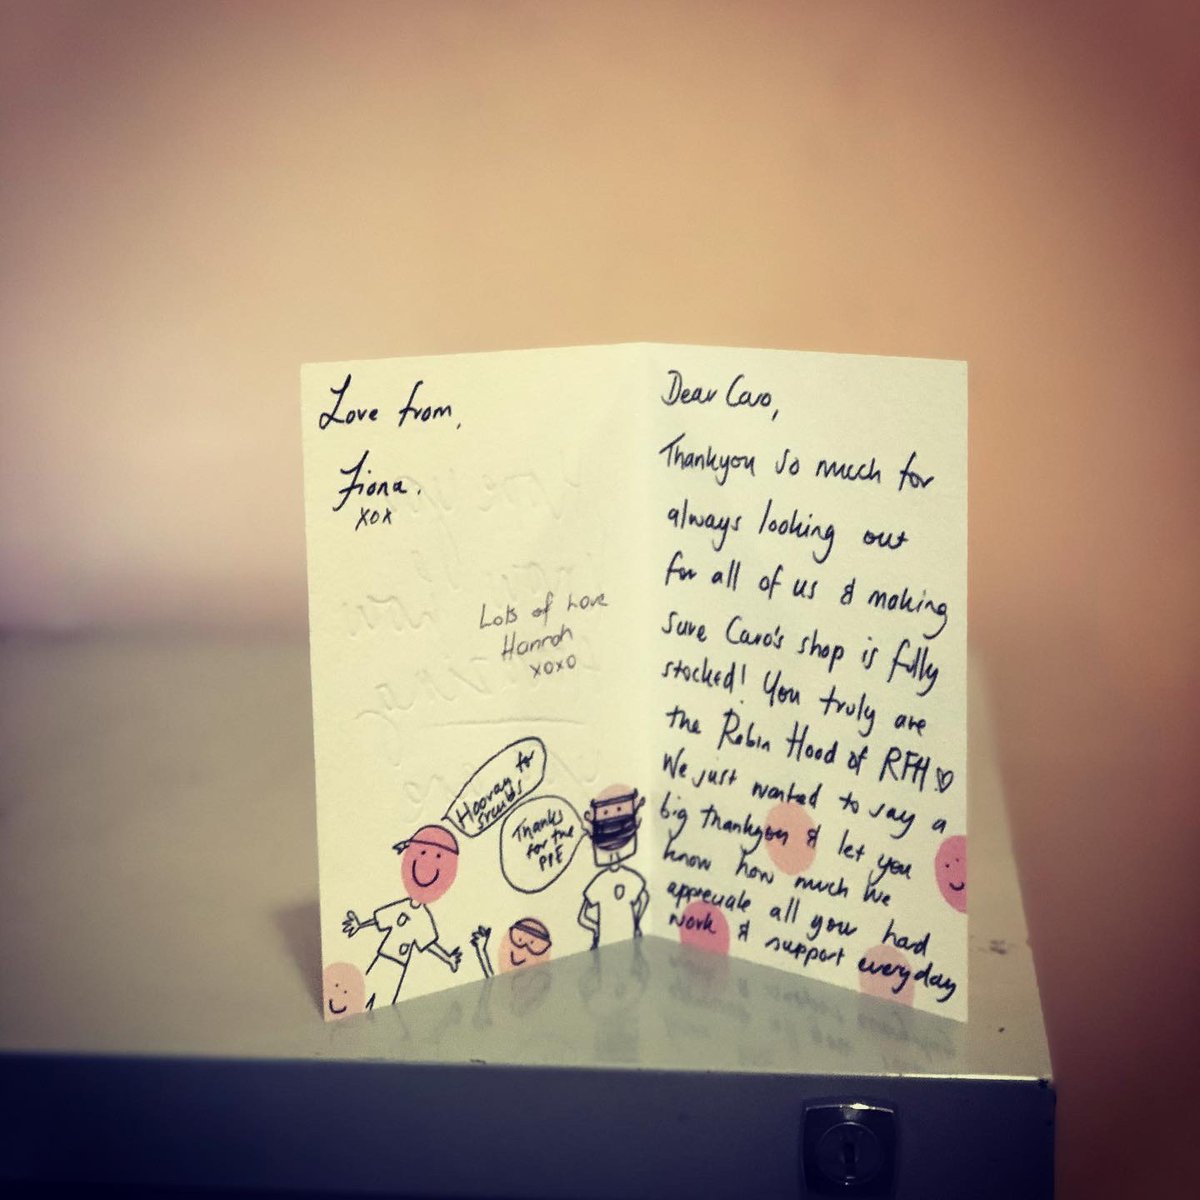 Love from,
Fiona.
xox
Lots of Love
Hannah
xoxo
Hooray for
scrubs
Thanks
for the
PPE
Dear Caro,
Thankyou so much for
always looking out
for all of us & making
sure Caro's shop is fully
stocked! You truly are
the Robin Hood of RFH ♡
We just wanted to say a
big thankyou & let you
know how much we
appreciate all your hard
work & support everyday